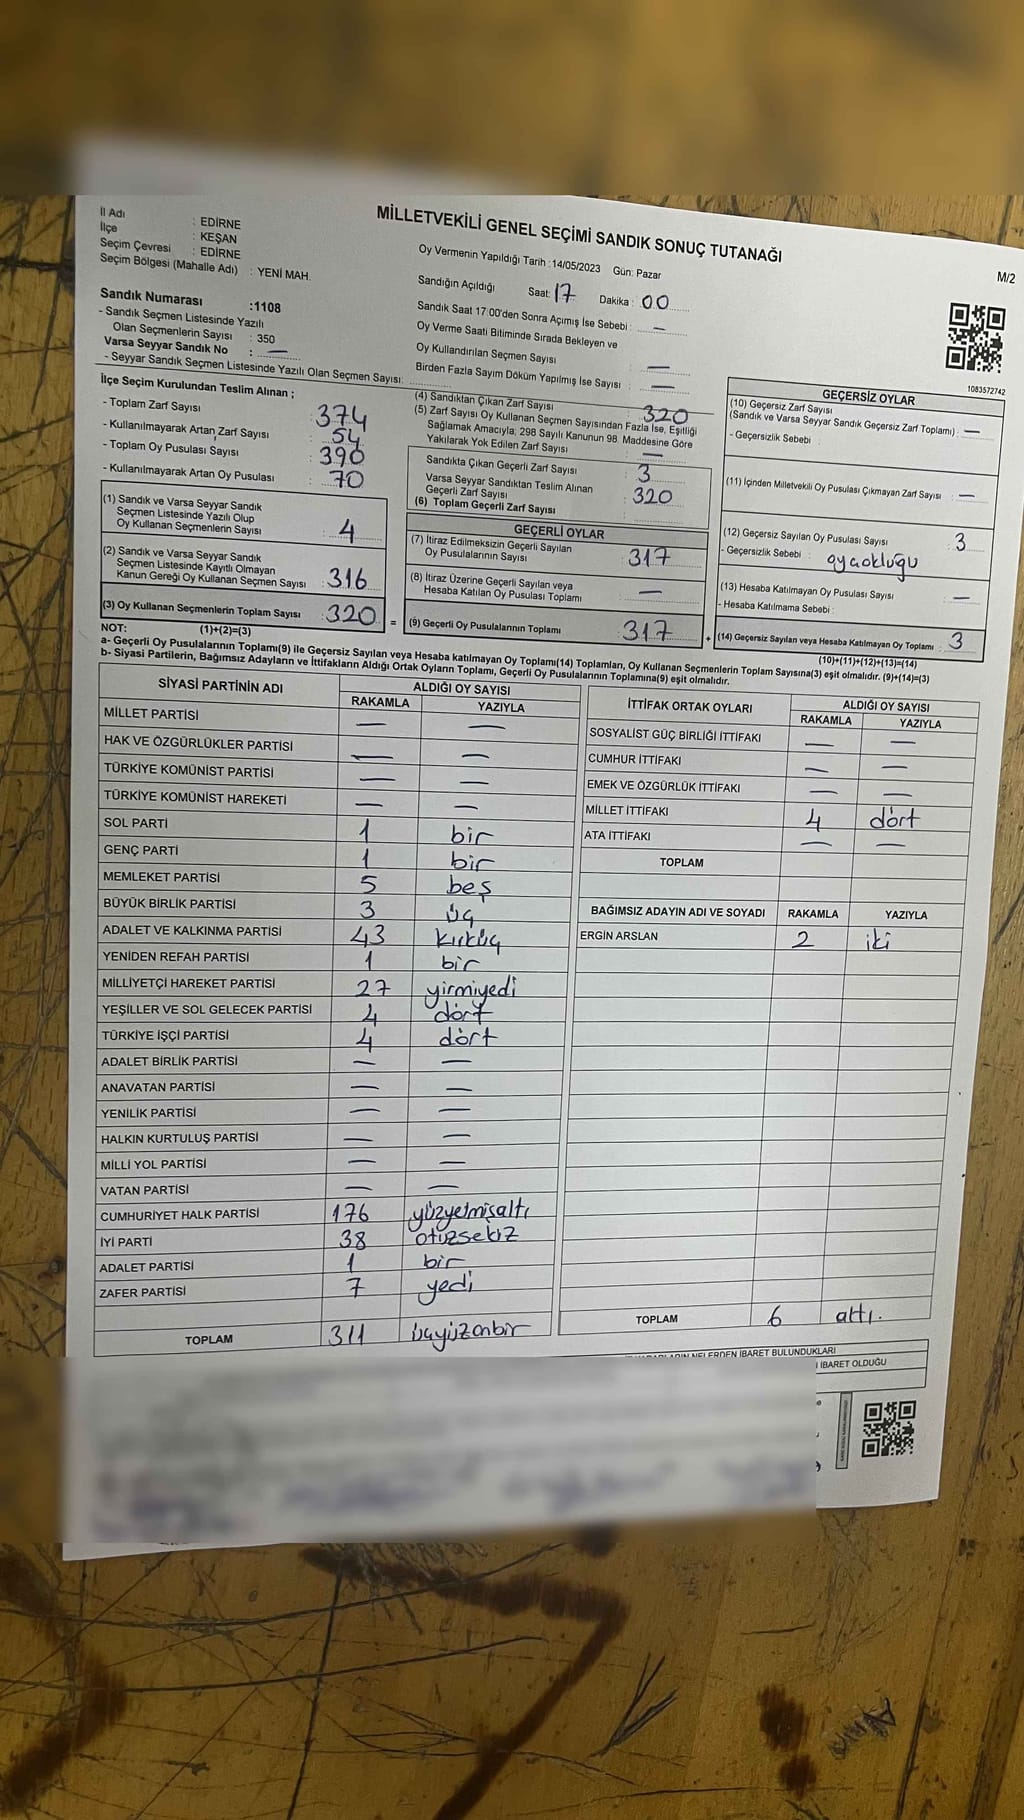 MİLLETVEKİLİ GENEL SEÇİMİ SANDIK SONUÇ TUTANAĞI
M/2
İl Adı : EDİRNE
İlçe : KEŞAN
Seçim Çevresi : EDİRNE
Seçim Bölgesi (Mahalle Adı) : YENİ MAH.
Sandık Numarası :1108
- Sandık Seçmen Listesinde Yazılı
Olan Seçmenlerin Sayısı : 350
Varsa Seyyar Sandık No : —
- Seyyar Sandık Seçmen Listesinde Yazılı Olan Seçmen Sayısı:
Oy Vermenin Yapıldığı Tarih :14/05/2023 Gün: Pazar
Sandığın Açıldığı Saat: 17 Dakika : 00
Sandık Saat 17:00'den Sonra Açımış İse Sebebi : —
Oy Verme Saati Bitiminde Sırada Bekleyen ve
Oy Kullandırılan Seçmen Sayısı : —
Birden Fazla Sayım Döküm Yapılmış İse Sayısı : —
1083572742
İlçe Seçim Kurulundan Teslim Alınan ;
- Toplam Zarf Sayısı : 374
- Kullanılmayarak Artan Zarf Sayısı : 54
- Toplam Oy Pusulası Sayısı : 390
- Kullanılmayarak Artan Oy Pusulası : 70
(1) Sandık ve Varsa Seyyar Sandık
Seçmen Listesinde Yazılı Olup
Oy Kullanan Seçmenlerin Sayısı : 4
(2) Sandık ve Varsa Seyyar Sandık
Seçmen Listesinde Kayıtlı Olmayan
Kanun Gereği Oy Kullanan Seçmen Sayısı : 316
(3) Oy Kullanan Seçmenlerin Toplam Sayısı : 320 =
(1)+(2)=(3)
(4) Sandıktan Çıkan Zarf Sayısı : 320
(5) Zarf Sayısı Oy Kullanan Seçmen Sayısından Fazla İse, Eşitliği
Sağlamak Amacıyla; 298 Sayılı Kanunun 98. Maddesine Göre
Yakılarak Yok Edilen Zarf Sayısı : —
Sandıkta Çıkan Geçerli Zarf Sayısı : 3
Varsa Seyyar Sandıktan Teslim Alınan
Geçerli Zarf Sayısı : 320
(6) Toplam Geçerli Zarf Sayısı :
GEÇERLİ OYLAR
(7) İtiraz Edilmeksizin Geçerli Sayılan
Oy Pusulalarının Sayısı : 317
(8) İtiraz Üzerine Geçerli Sayılan veya
Hesaba Katılan Oy Pusulası Toplamı : —
(9) Geçerli Oy Pusulalarının Toplamı : 317 +
GEÇERSİZ OYLAR
(10) Geçersiz Zarf Sayısı
(Sandık ve Varsa Seyyar Sandık Geçersiz Zarf Toplamı) : —
- Geçersizlik Sebebi :
(11) İçinden Milletvekili Oy Pusulası Çıkmayan Zarf Sayısı : —
(12) Geçersiz Sayılan Oy Pusulası Sayısı : 3
- Geçersizlik Sebebi :
(13) Hesaba Katılmayan Oy Pusulası Sayısı : —
- Hesaba Katılmama Sebebi :
(14) Geçersiz Sayılan veya Hesaba Katılmayan Oy Toplamı : 3
(10)+(11)+(12)+(13)=(14)
NOT:
a- Geçerli Oy Pusulalarının Toplamı(9) ile Geçersiz Sayılan veya Hesaba katılmayan Oy Toplamı(14) Toplamları, Oy Kullanan Seçmenlerin Toplam Sayısına(3) eşit olmalıdır. (9)+(14)=(3)
b- Siyasi Partilerin, Bağımsız Adayların ve İttifakların Aldığı Ortak Oyların Toplamı, Geçerli Oy Pusulalarının Toplamına(9) eşit olmalıdır.
SİYASİ PARTİNİN ADI ALDIĞI OY SAYISI
RAKAMLA YAZIYLA
MİLLET PARTİSİ — —
HAK VE ÖZGÜRLÜKLER PARTİSİ — —
TÜRKİYE KOMÜNİST PARTİSİ — —
TÜRKİYE KOMÜNİST HAREKETİ — —
SOL PARTİ 1 bir
GENÇ PARTİ 1 bir
MEMLEKET PARTİSİ 5 beş
BÜYÜK BİRLİK PARTİSİ 3 üç
ADALET VE KALKINMA PARTİSİ 43 kırküç
YENİDEN REFAH PARTİSİ 1 bir
MİLLİYETÇİ HAREKET PARTİSİ 27 yirmiyedi
YEŞİLLER VE SOL GELECEK PARTİSİ 4 dört
TÜRKİYE İŞÇİ PARTİSİ 4 dört
ADALET BİRLİK PARTİSİ — —
ANAVATAN PARTİSİ — —
YENİLİK PARTİSİ — —
HALKIN KURTULUŞ PARTİSİ — —
MİLLİ YOL PARTİSİ — —
VATAN PARTİSİ — —
CUMHURİYET HALK PARTİSİ 176 yüzyetmişaltı
İYİ PARTİ 38 otuzsekiz
ADALET PARTİSİ 1 bir
ZAFER PARTİSİ 7 yedi
TOPLAM 311 üçyüzonbir
İTTİFAK ORTAK OYLARI ALDIĞI OY SAYISI
RAKAMLA YAZIYLA
SOSYALİST GÜÇ BİRLİĞİ İTTİFAKI — —
CUMHUR İTTİFAKI — —
EMEK VE ÖZGÜRLÜK İTTİFAKI — —
MİLLET İTTİFAKI 4 dört
ATA İTTİFAKI — —
TOPLAM
BAĞIMSIZ ADAYIN ADI VE SOYADI RAKAMLA YAZIYLA
ERGİN ARSLAN 2 iki
TOPLAM 6 altı.
NELERDEN İBARET BULUNDUKLARI
İBARET OLDUĞU